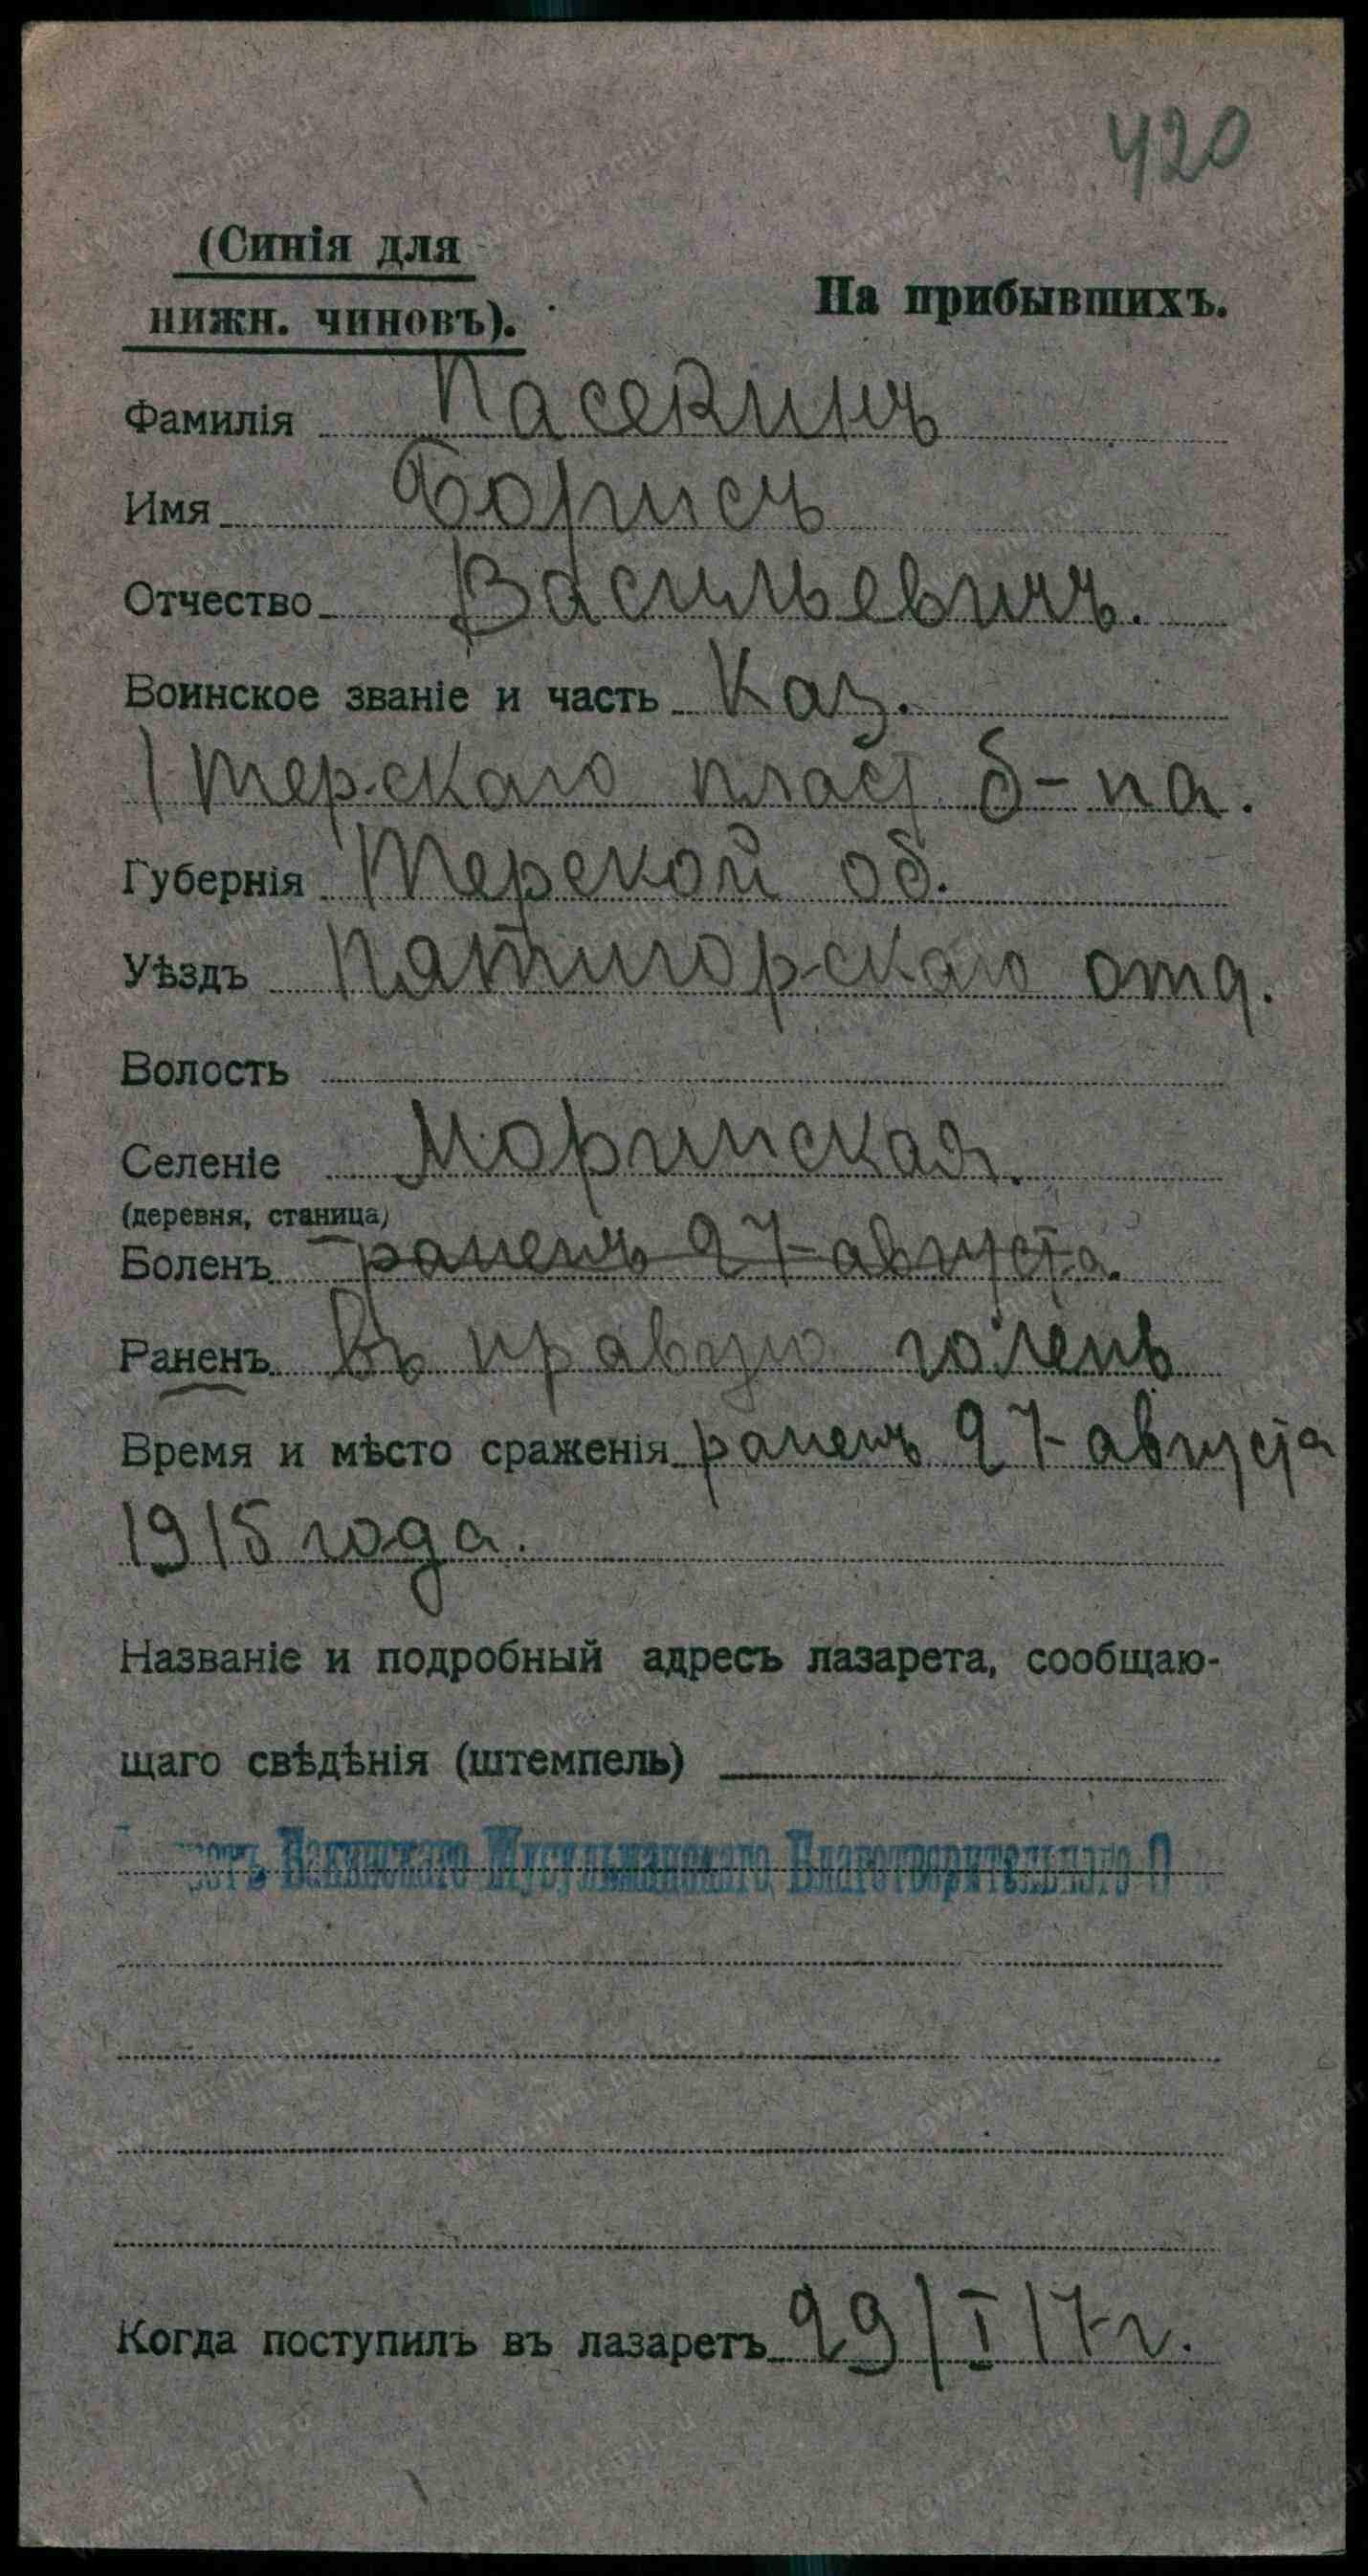 420
(Синія для
нижн. чиновъ).
На прибывшихъ.
Фамилія Пасекинъ
Имя Борисъ
Отчество Васильевичъ.
Воинское званіе и часть Каз.
1 терскаго пласт. б-на.
Губернія Терской об.
Уѣздъ Пятигорскаго отд.
Волость
Селеніе Моринская.
(деревня, станица)
Боленъ раненъ 27 августа.
Раненъ въ правую голень
Время и мѣсто сраженія раненъ 27 августа
1915 года.
Названіе и подробный адресъ лазарета, сообщаю-
щаго свѣдѣнія (штемпель)
Бакинскаго Мусульманскаго Благотворительнаго О
Когда поступилъ въ лазаретъ 29/I 17 г.